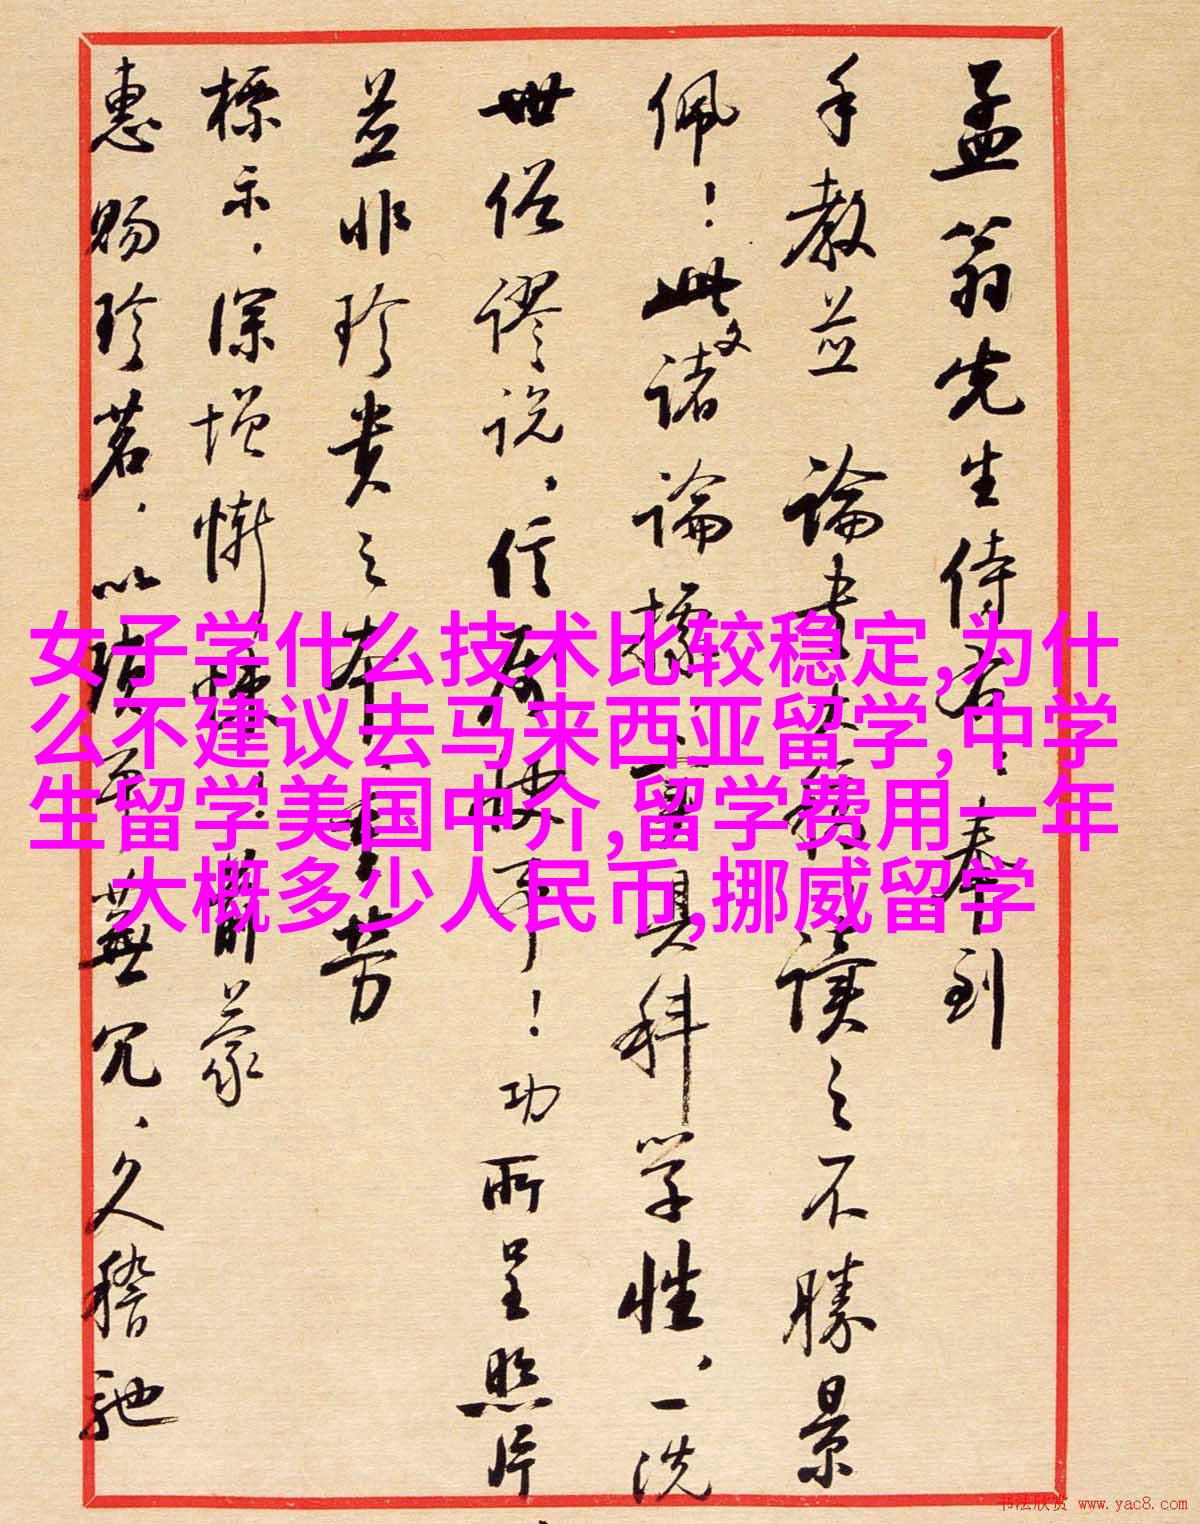 孟翁先生侍右：奉到
手教並論書大報，读之不勝景
佩！此文诸論據，具科学性，一洗
世俗謬说，信 快事！功所呈照片
並非珍贵之本，芳
標示，深增慚悚！蒙
惠賜珍茗，以 蕪冗，久稽馳
女子学什么技术比较稳定,为什
么不建议去马来西亚留学,中学
生留学美国中介,留学费用一年
大概多少人民币,挪威留学
书法欣赏 www.yac8.com